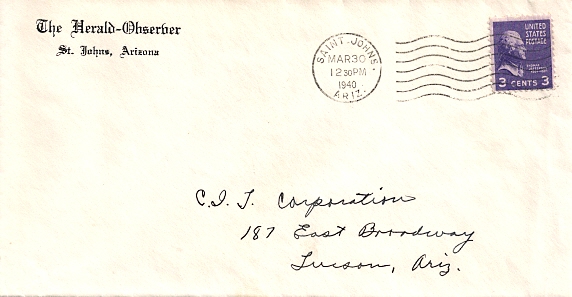 The Herald-Observer
St. Johns, Arizona
SAINT JOHNS
MAR 30
12 30 PM
1940
ARIZ.
UNITED
STATES
POSTAGE
3 CENTS 3
C.I.T. Corporation
187 East Broadway
Tucson, Ariz.